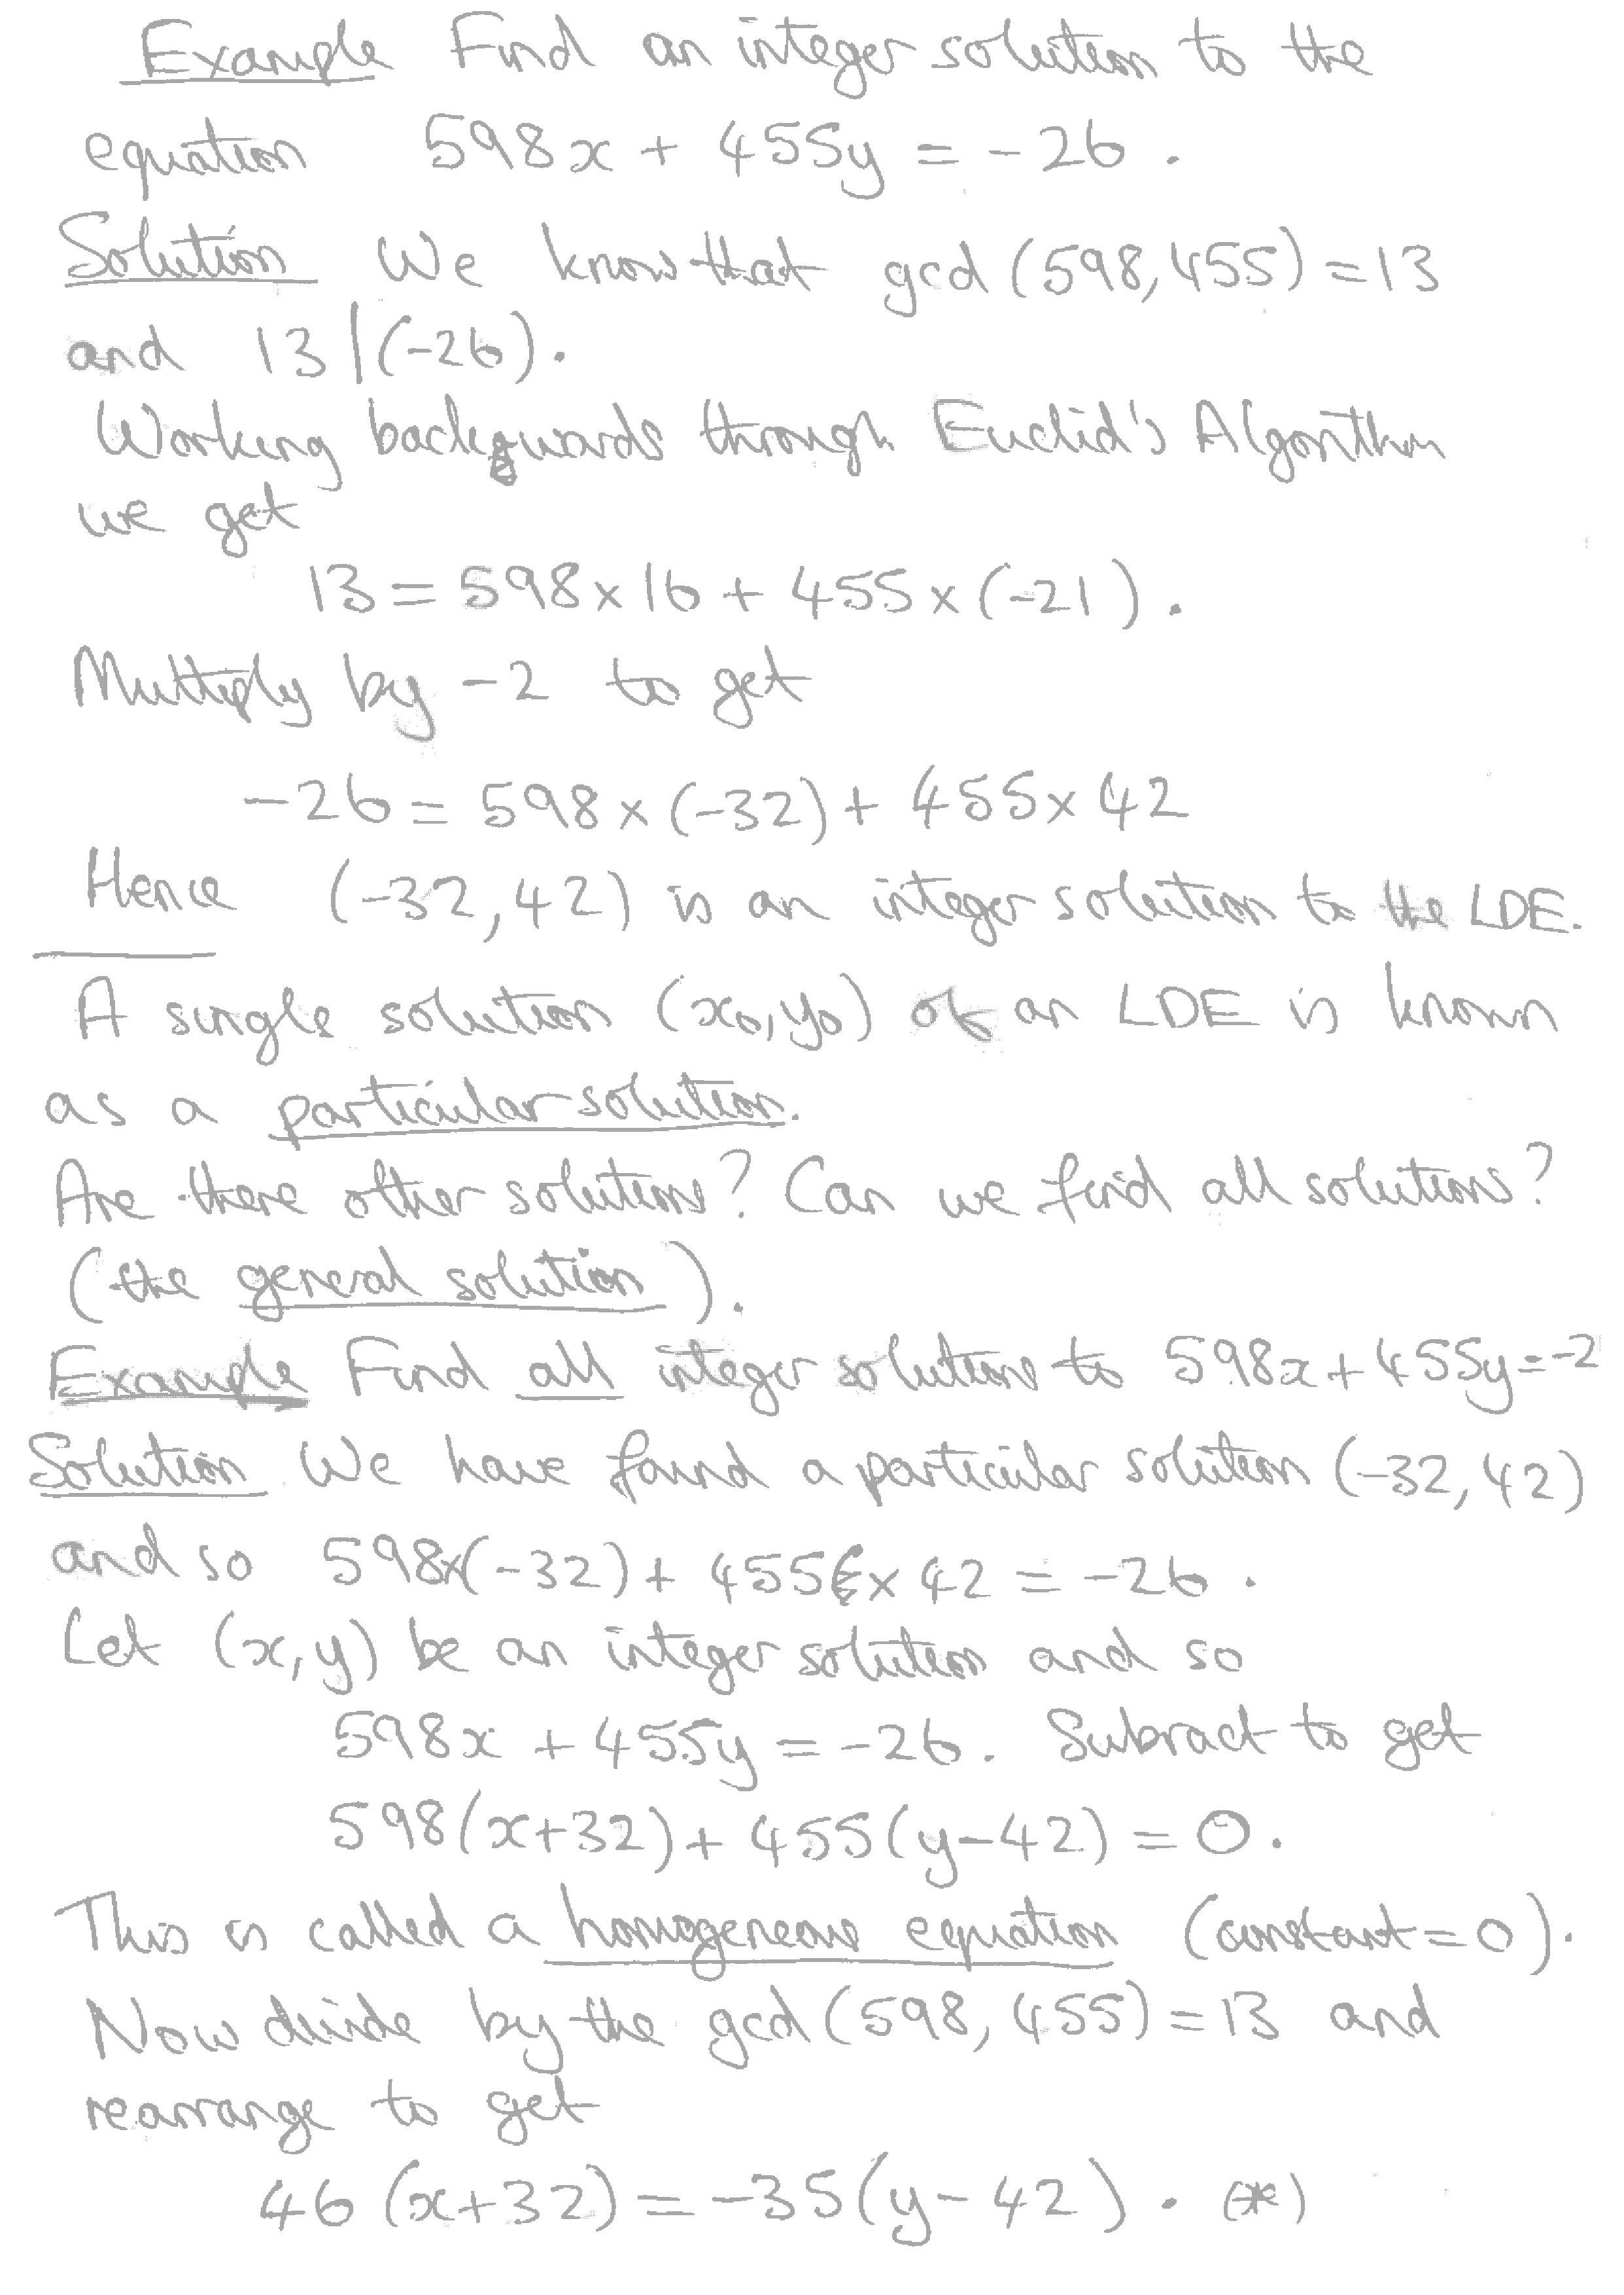 Example Find an integer solution to the
equation 598x + 455y = -26.
Solution We know that gcd(598,455)=13
and 13|(-26).
Working backwards through Euclid's Algorithm
we get
13 = 598×16 + 455×(-21).
Multiply by -2 to get
-26 = 598×(-32) + 455×42
Hence (-32,42) is an integer solution to the LDE.
A single solution (x₀,y₀) of an LDE is known
as a particular solution.
Are there other solutions? Can we find all solutions?
(the general solution).
Example Find all integer solutions to 598x+455y=-2
Solution We have found a particular solution (-32,42)
and so 598×(-32) + 455×42 = -26.
Let (x,y) be an integer solution and so
598x + 455y = -26. Subract to get
598(x+32) + 455(y-42) = 0.
This is called a homogeneous equation (constant=0).
Now divide by the gcd(598,455)=13 and
rearrange to get
46(x+32) = -35(y-42). (*)